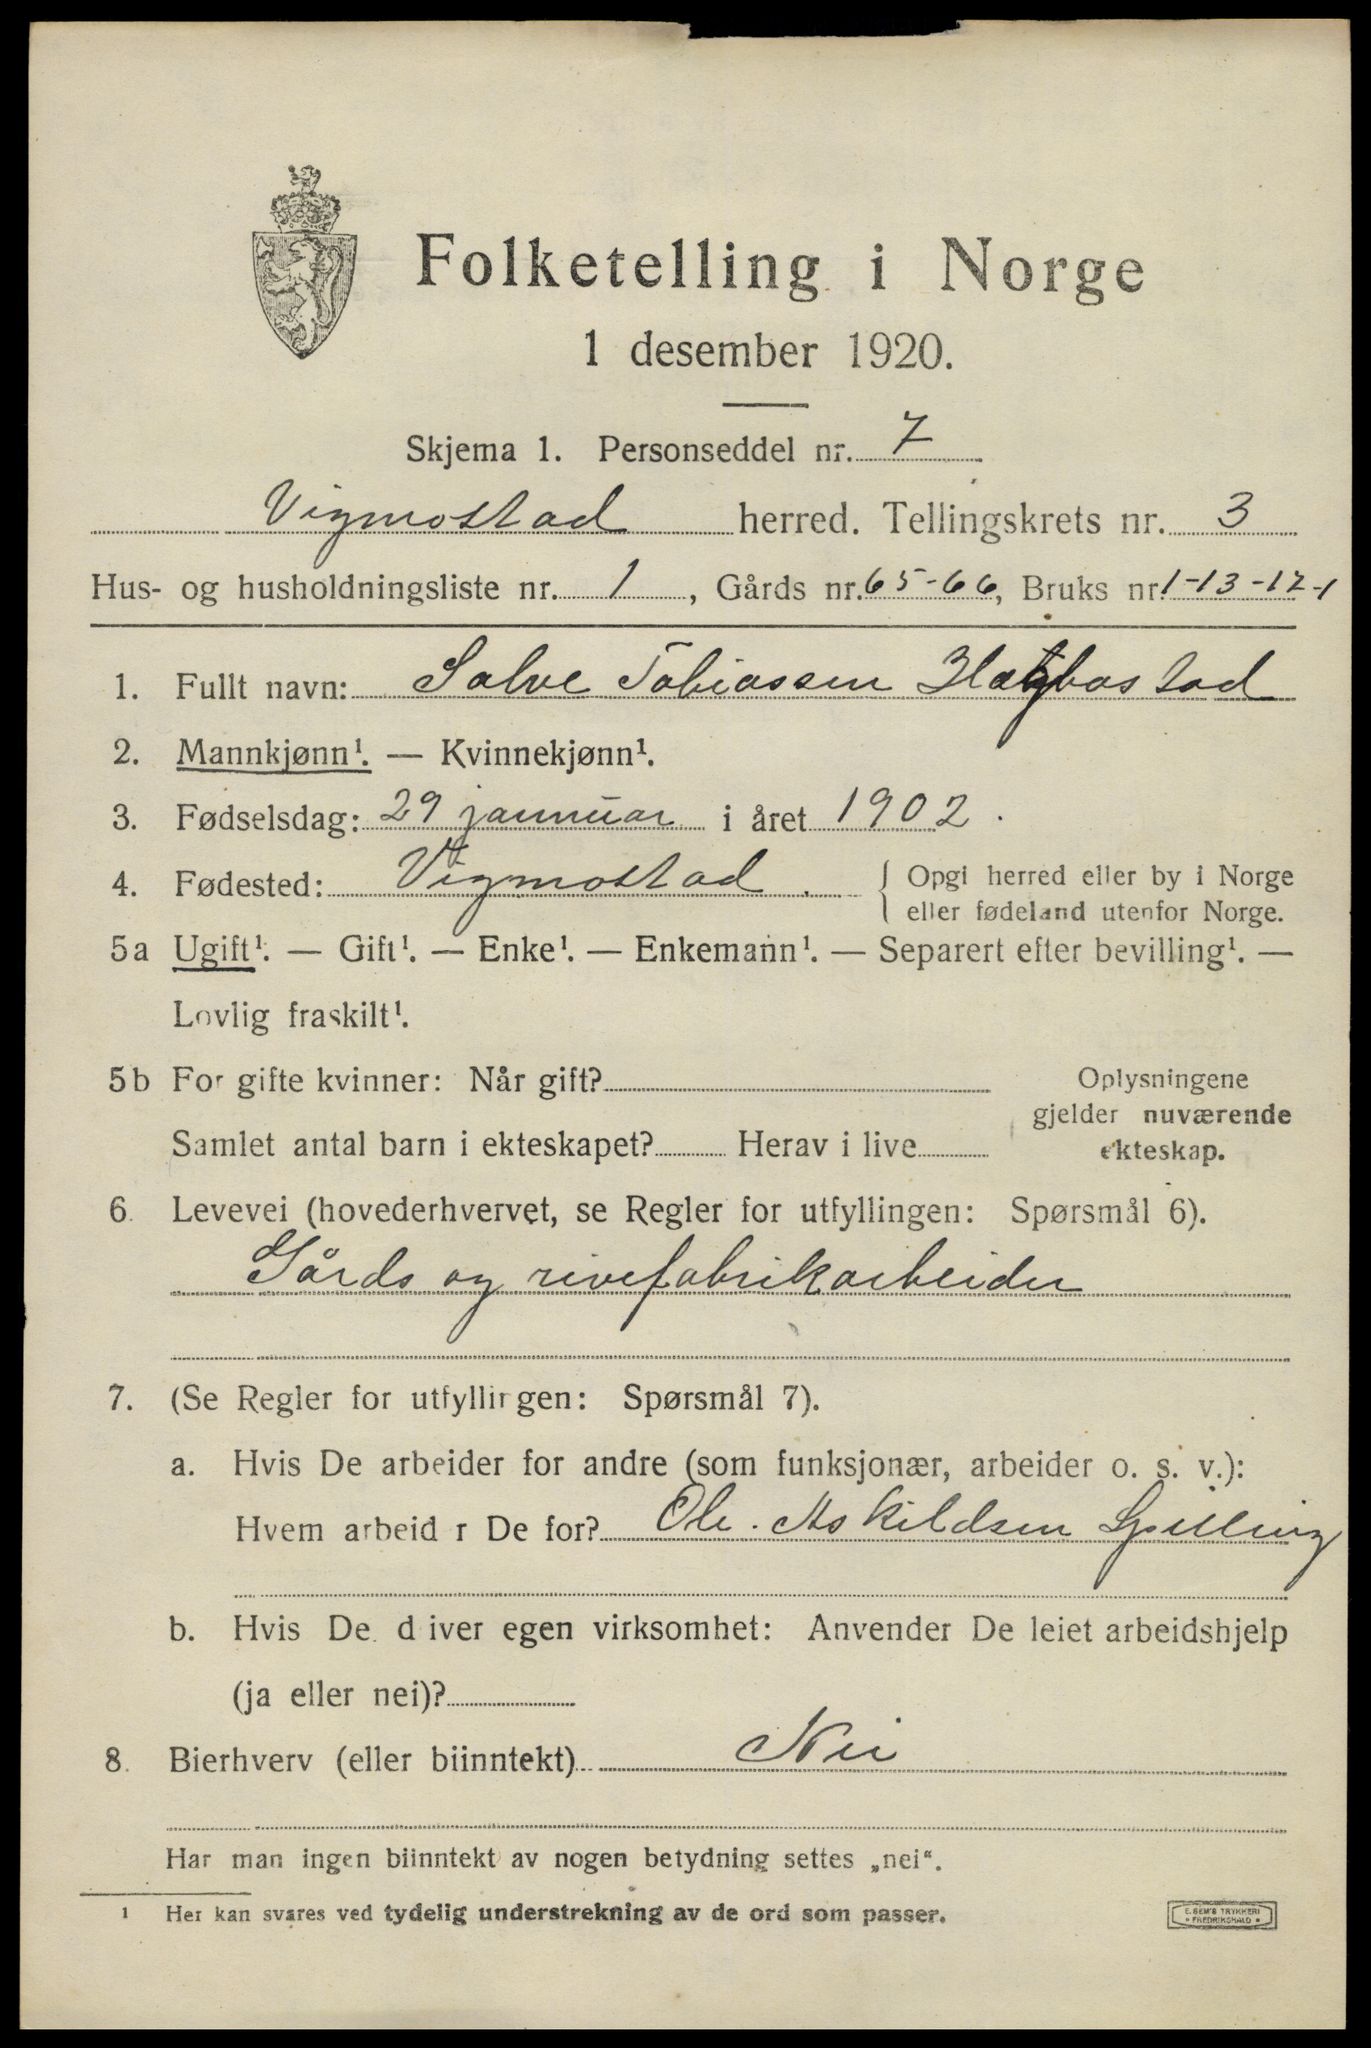 Folketelling i Norge
1 desember 1920.
Skjema 1. Personseddel nr. 7
Vigmostad herred. Tellingskrets nr. 3
Hus- og husholdningsliste nr. 1, Gårds nr. 65-66, Bruks nr. 1-13-12-1
1. Fullt navn: Salve Tobiassen Hægbostad
2. Mannkjønn¹. — Kvinnekjønn¹.
3. Fødselsdag: 29 januar i året 1902.
4. Fødested: Vigmostad. { Opgi herred eller by i Norge
eller fødeland utenfor Norge.
5a Ugift¹. — Gift¹. — Enke¹. — Enkemann¹. — Separert efter bevilling¹. —
Lovlig fraskilt¹.
5b For gifte kvinner: Når gift?
Samlet antal barn i ekteskapet? Herav i live
Oplysningene
gjelder nuværende
ekteskap.
6. Levevei (hovederhvervet, se Regler for utfyllingen: Spørsmål 6).
Gårds og rivefabrikarbeider
7. (Se Regler for utfyllingen: Spørsmål 7).
a. Hvis De arbeider for andre (som funksjonær, arbeider o. s. v.):
Hvem arbeid r De for? Ole. Askildsen Spilling
b. Hvis De d iver egen virksomhet: Anvender De leiet arbeidshjelp
(ja eller nei)?
8. Bierhverv (eller biinntekt) Nei
Har man ingen biinntekt av nogen betydning settes „nei“.
¹ Her kan svares ved tydelig understrekning av de ord som passer.
E. SEM'S TRYKKERI
FREDRIKSHALD